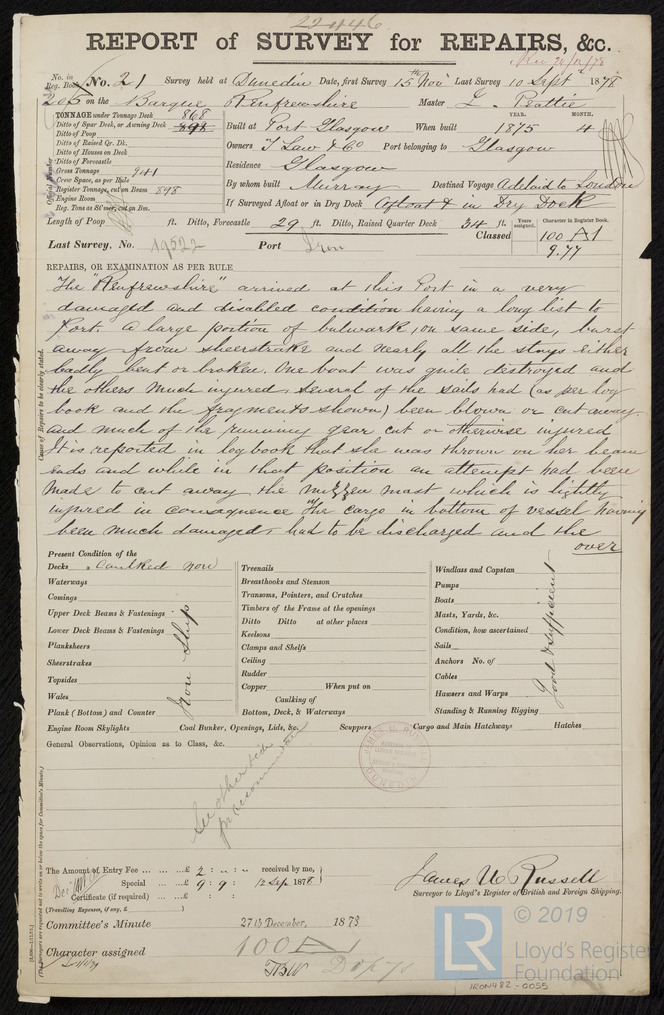 22446
REPORT of SURVEY for REPAIRS, &c.
No. in Reg. Book No. 21 Survey held at Dunedin Date, first Survey 15th Nov Last Survey 10 Sept 1878
205 on the Barque Renfrewshire Master J. Peattie
TONNAGE under Tonnage Deck 868
Ditto of Spar Deck, or Awning Deck
Ditto of Poop
Ditto of Raised Qr. Dk.
Ditto of Houses on Deck
Ditto of Forecastle
Gross Tonnage 941
Crew Space, as per Rule
Register Tonnage, cut on Beam 898
Engine Room
Reg. Tons as St'mer, cut on Bm.
Official Number
YEAR. MONTH.
Built at Port Glasgow When built 1875 4
Owners T Law & Co Port belonging to Glasgow
Residence Glasgow
By whom built Murray Destined Voyage Adelaid to London
If Surveyed Afloat or in Dry Dock Afloat & in Dry Dock
Length of Poop ft. Ditto, Forecastle 29 ft. Ditto, Raised Quarter Deck 34 ft.
Years assigned. Character in Register Book.
Classed 100 A1
9.77
Last Survey, No. 19522 Port Iron
REPAIRS, OR EXAMINATION AS PER RULE
The "Renfrewshire" arrived at this Port in a very
damaged and disabled condition having a long list to
Port. A large portion of bulwark, on same side, burst
away from sheerstrake and nearly all the stays either
badly bent or broken. One boat was quite destroyed and
the others much injured, several of the sails had (as per log
book and the fragments shown) been blown or cut away
and much of the running gear cut or otherwise injured
It is reported in log book that she was thrown on her beam
ends and while in that position an attempt had been
made to cut away the mizzen mast which is lightly
injured in consequence The cargo in bottom of vessel having
been much damaged, had to be discharged and the
over
Cause of Repairs to be clearly stated.
Present Condition of the
Decks caulked now
Waterways
Comings
Upper Deck Beams & Fastenings
Lower Deck Beams & Fastenings
Planksheers
Sheerstrakes
Topsides
Wales
Plank (Bottom) and Counter
Iron Ship
Treenails
Breasthooks and Stemson
Transoms, Pointers, and Crutches
Timbers of the Frame at the openings
Ditto Ditto at other places
Keelsons
Clamps and Shelfs
Ceiling
Rudder
Copper When put on
Caulking of
Bottom, Deck, & Waterways
Windlass and Capstan
Pumps
Boats
Masts, Yards, &c.
Condition, how ascertained
Sails
Anchors No. of
Cables
Hawsers and Warps
Standing & Running Rigging
Good & sufficient
Engine Room Skylights Coal Bunker, Openings, Lids, &c. Scuppers Cargo and Main Hatchways Hatches
General Observations, Opinion as to Class, &c.
See other side
for recommendation
JAMES U. RUSSELL
DUNEDIN
The Amount of Entry Fee £ 2 : " : " received by me,
Special £ 9 : 9 : 12 Sep 1878
Certificate (if required) £ : :
(Travelling Expenses, if any, £ )
James U Russell
Surveyor to Lloyd's Register of British and Foreign Shipping.
Committee's Minute 27th December, 1878
Character assigned 100 A 1
© 2019
LR
Lloyd's Register
Foundation
IRON482 - 0055